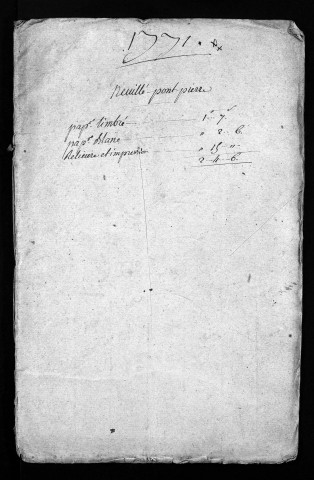 .1771.
Neuillé pont pierre
pap.r timbré 1..7.
pap.r blanc " 2..6.
Relieure et impression " 15.. "
2..4..6.